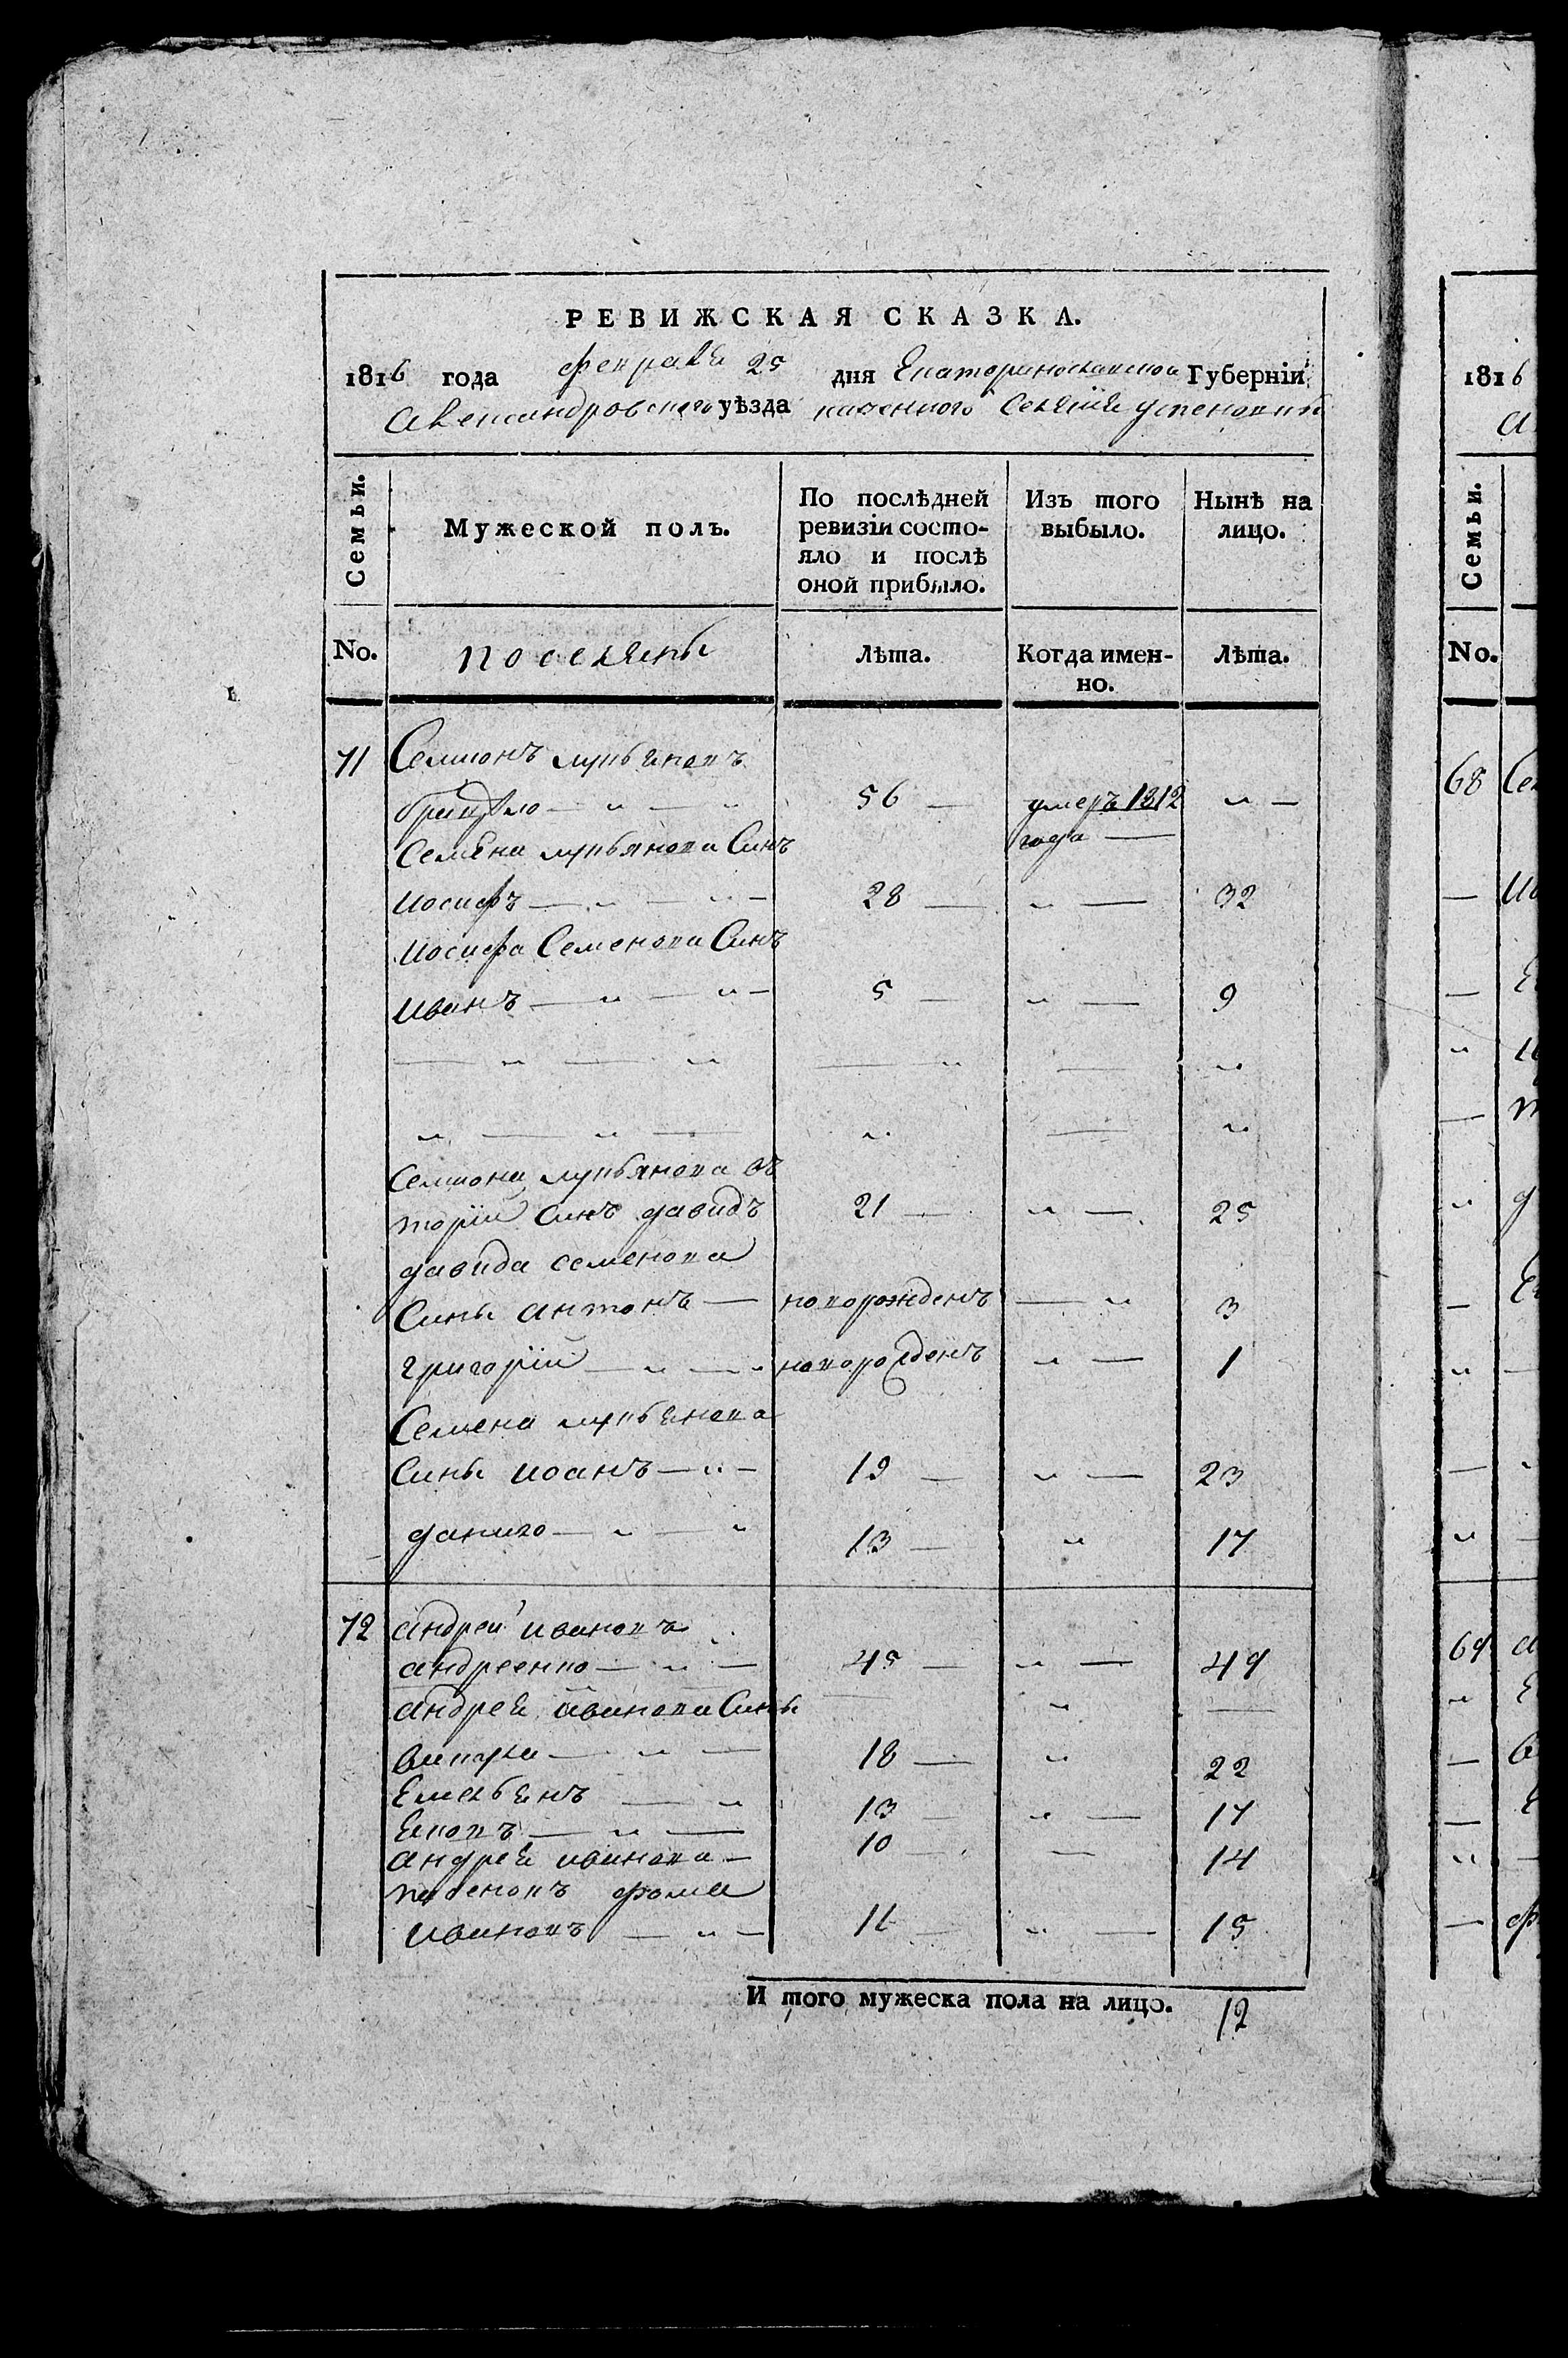 РЕВИЖСКАЯ СКАЗКА.
1816 года февраля 25 дня Екатеринославской Губерніи
Александровскаго уѣзда казенного Селенія
Семьи.
Мужеской полъ.
По послѣдней ревизіи состо-
яло и послѣ
оной прибыло.
Изъ того
выбыло.
Нынѣ на
лицо.
No.
поселяны
Лѣта.
Когда имен-
но.
Лѣта.
71 Семионъ лукьяновъ
56 — умеръ 1812 " —
года —
Семена лукьянова Синъ
иосифъ — " — " — 28 — " — 32
иосифа Семенова Синъ
иванъ — " — " — 5 — " — 9
— " — " — " — "
" — " — " — "
Семиона лукьянова в
торій Синъ давидъ 21 — " — 25
давида семенова
Сины антонъ — новорожденъ — " 3
григорій — " — " новорожденъ " — 1
Семена лукьянова
Сины иоанъ — " — 19 — " — 23
данило — " — " 13 — " 17
72 андрей ивановъ
андреенко — " — 45 — " — 49
андрея иванова Сины — " —
вакула — " — 18 — " 22
Емельянъ — " 13 — " — 17
Яковъ — " — 10 — — 14
андрея иванова —
фома
ивановъ — " — 11 — " — 15
И того мужеска пола на лицо. 12
1816
Семьи.
No.
68
69